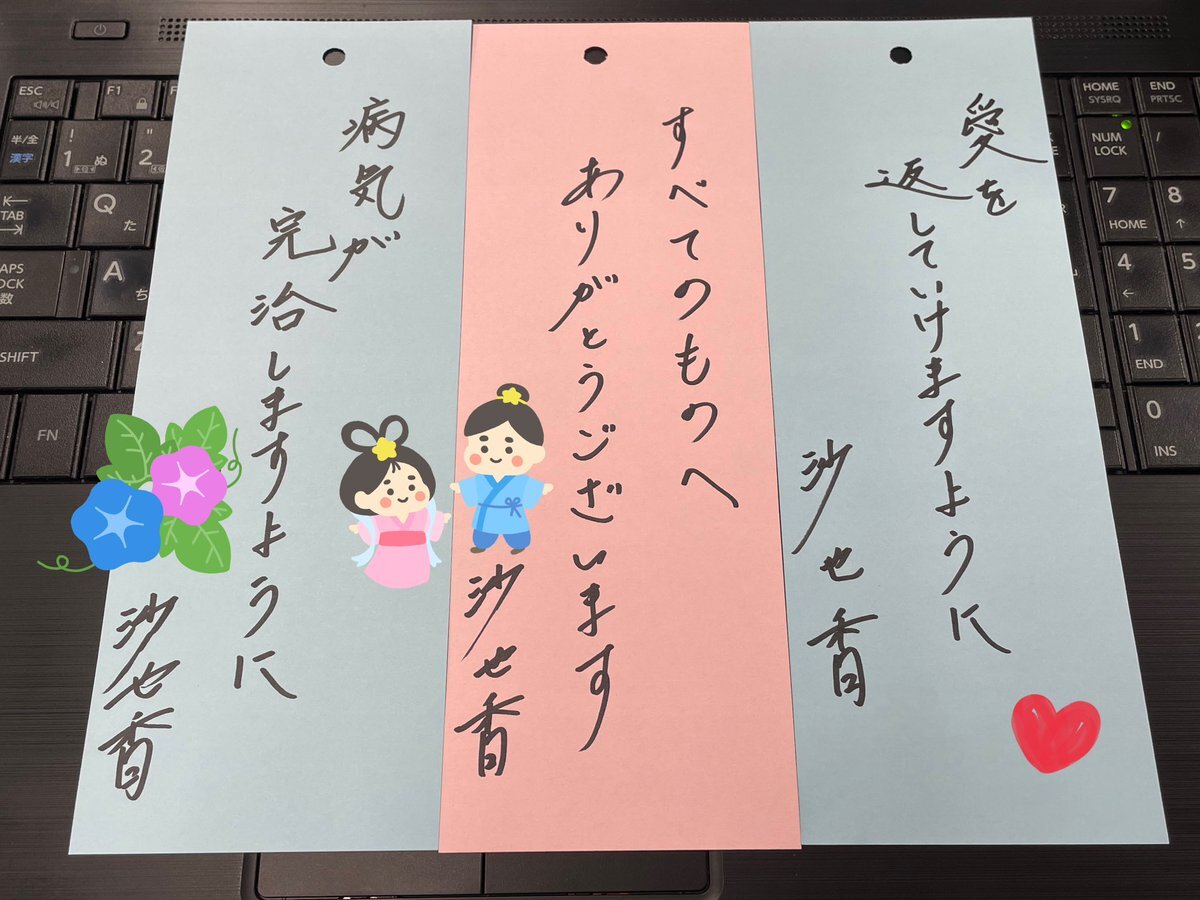 愛を
返していけますように
沙也香
すべてのものへ
ありがとうございます
沙也香
病気が
完治しますように
沙也香
ESC
F1
半/全
漢字
!
1
ぬ
"
2
TAB
Q
た
A
ち
SHIFT
FN
HOME
SYSRQ
END
PRTSC
NUM
LOCK
/
7
HOME
8
↑
4
←
5
1
END
0
INS